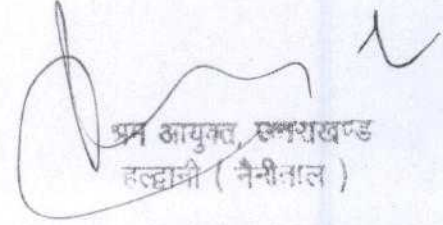 श्रम आयुक्त, उत्तराखण्ड
हल्द्वानी ( नैनीताल )